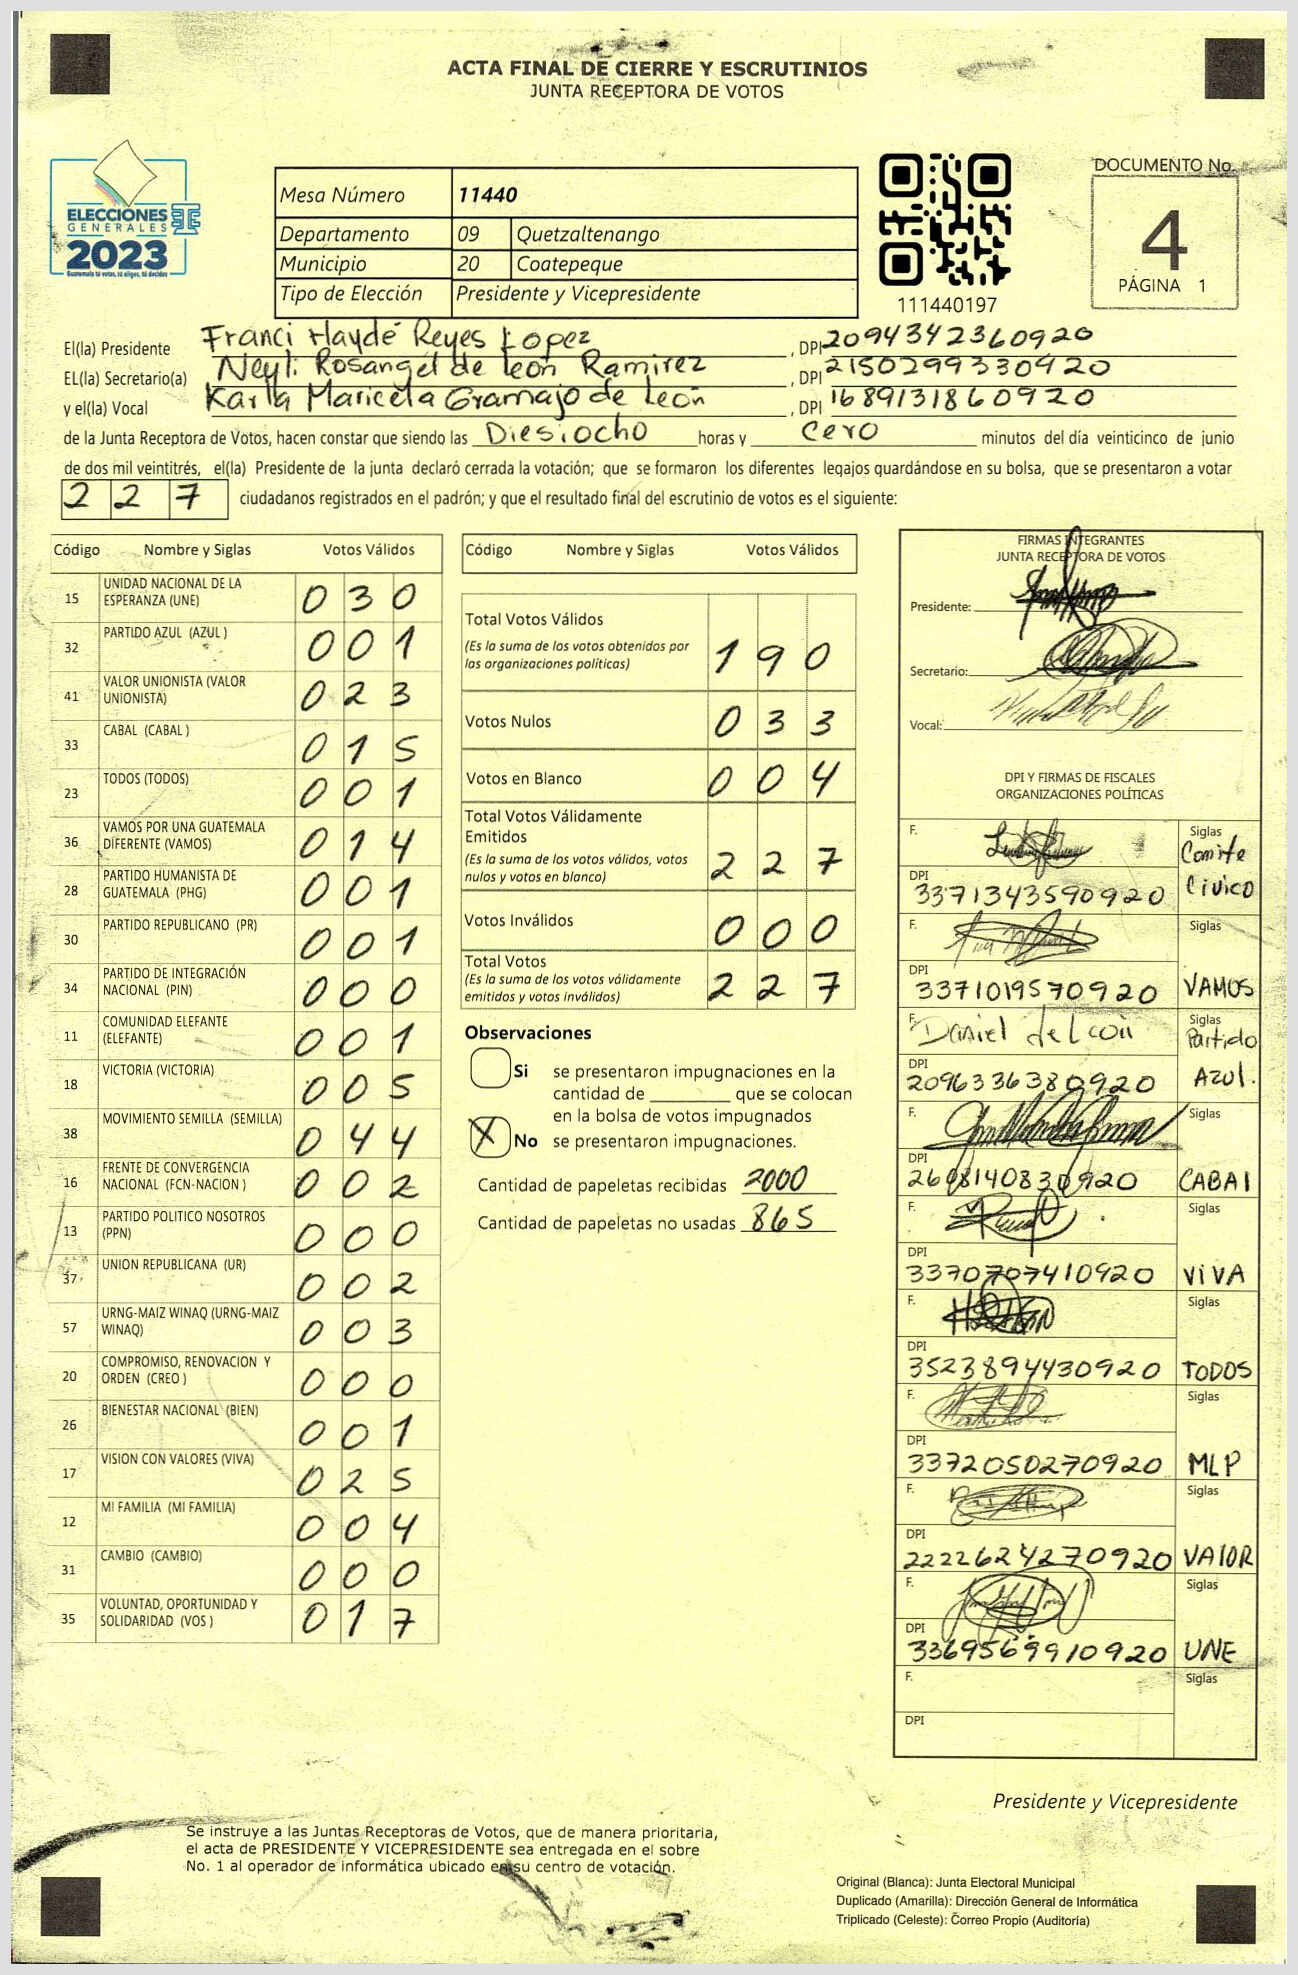 ACTA FINAL DE CIERRE Y ESCRUTINIOS
JUNTA RECEPTORA DE VOTOS
ELECCIONES
GENERALES
2023
Guatemala tú votas, tú eliges, tú decides
Mesa Número 11440
Departamento 09 Quetzaltenango
Municipio 20 Coatepeque
Tipo de Elección Presidente y Vicepresidente
111440197
DOCUMENTO No.
4
PÁGINA 1
El(la) Presidente Franci Haydé Reyes Lopez, DPI 2094342360920
EL(la) Secretario(a) Neyli Rosangel de león Ramirez, DPI 2150299330920
y el(la) Vocal Karla Maricela Gramajo de León, DPI 1689131860920
de la Junta Receptora de Votos, hacen constar que siendo las Diesiocho horas y cero minutos del día veinticinco de junio
de dos mil veintitrés, el(la) Presidente de la junta declaró cerrada la votación; que se formaron los diferentes legajos guardándose en su bolsa, que se presentaron a votar
227 ciudadanos registrados en el padrón; y que el resultado final del escrutinio de votos es el siguiente:
Código Nombre y Siglas Votos Válidos
15 UNIDAD NACIONAL DE LA ESPERANZA (UNE) 030
32 PARTIDO AZUL (AZUL ) 001
41 VALOR UNIONISTA (VALOR UNIONISTA) 023
33 CABAL (CABAL ) 015
23 TODOS (TODOS) 001
36 VAMOS POR UNA GUATEMALA DIFERENTE (VAMOS) 014
28 PARTIDO HUMANISTA DE GUATEMALA (PHG) 001
30 PARTIDO REPUBLICANO (PR) 001
34 PARTIDO DE INTEGRACIÓN NACIONAL (PIN) 000
11 COMUNIDAD ELEFANTE (ELEFANTE) 001
18 VICTORIA (VICTORIA) 005
38 MOVIMIENTO SEMILLA (SEMILLA) 044
16 FRENTE DE CONVERGENCIA NACIONAL (FCN-NACION ) 002
13 PARTIDO POLITICO NOSOTROS (PPN) 000
37 UNION REPUBLICANA (UR) 002
57 URNG-MAIZ WINAQ (URNG-MAIZ WINAQ) 003
20 COMPROMISO, RENOVACION Y ORDEN (CREO ) 000
26 BIENESTAR NACIONAL (BIEN) 001
17 VISION CON VALORES (VIVA) 025
12 MI FAMILIA (MI FAMILIA) 004
31 CAMBIO (CAMBIO) 000
35 VOLUNTAD, OPORTUNIDAD Y SOLIDARIDAD (VOS ) 017
Código Nombre y Siglas Votos Válidos
Total Votos Válidos 190
(Es la suma de los votos obtenidos por
las organizaciones políticas)
Votos Nulos 033
Votos en Blanco 004
Total Votos Válidamente
Emitidos 227
(Es la suma de los votos válidos, votos
nulos y votos en blanco)
Votos Inválidos 000
Total Votos 227
(Es la suma de los votos válidamente
emitidos y votos inválidos)
Observaciones
Si se presentaron impugnaciones en la
cantidad de ________ que se colocan
en la bolsa de votos impugnados
X No se presentaron impugnaciones.
Cantidad de papeletas recibidas 2000
Cantidad de papeletas no usadas 865
FIRMAS INTEGRANTES
JUNTA RECEPTORA DE VOTOS
Presidente:
Secretario:
Vocal:
DPI Y FIRMAS DE FISCALES
ORGANIZACIONES POLÍTICAS
F. Siglas Comite Civico
DPI 3371343590920
F. Siglas VAMOS
DPI 3371019570920
F. Daniel de León Siglas Partido Azul.
DPI 2096336380920
F. Siglas CABAl
DPI 2608140830920
F. Siglas ViVA
DPI 3370707410920
F. Siglas TODOS
DPI 3523894430920
F. Siglas MLP
DPI 3372050270920
F. Siglas VAlOR
DPI 2222624270920
F. Siglas UNE
DPI 3369569910920
F. Siglas
DPI
Presidente y Vicepresidente
Se instruye a las Juntas Receptoras de Votos, que de manera prioritaria,
el acta de PRESIDENTE Y VICEPRESIDENTE sea entregada en el sobre
No. 1 al operador de informática ubicado en su centro de votación.
Original (Blanca): Junta Electoral Municipal
Duplicado (Amarilla): Dirección General de Informática
Triplicado (Celeste): Correo Propio (Auditoría)